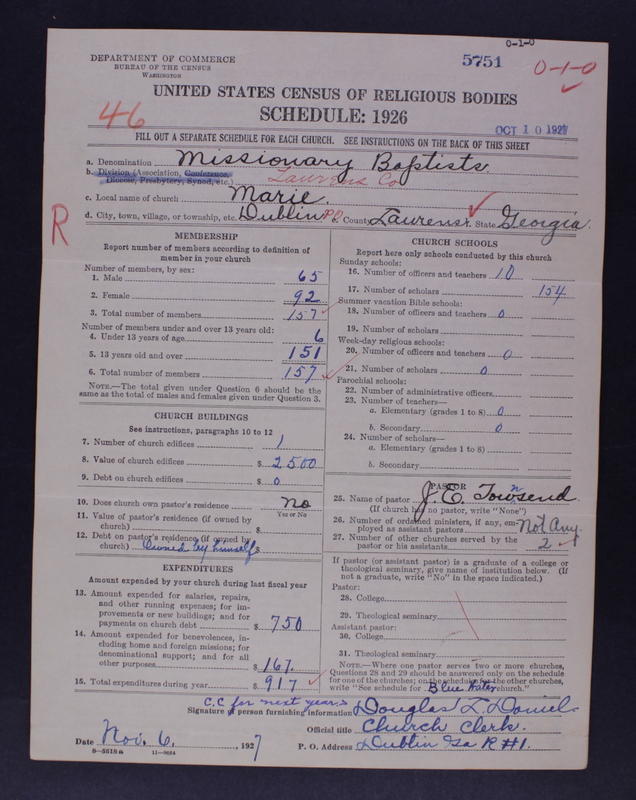 0-1-0
DEPARTMENT OF COMMERCE
BUREAU OF THE CENSUS
WASHINGTON
5751
0-1-0
UNITED STATES CENSUS OF RELIGIOUS BODIES
SCHEDULE: 1926
46
OCT 10 1927
FILL OUT A SEPARATE SCHEDULE FOR EACH CHURCH. SEE INSTRUCTIONS ON THE BACK OF THIS SHEET
a. Denomination Missionary Baptists
b. Division (Association, Conference, Diocese, Presbytery, Synod, etc.) Laurens Co
c. Local name of church Marie
d. City, town, village, or township, etc. Dublin PO e. County Laurens f. State Georgia
R
MEMBERSHIP
Report number of members according to definition of
member in your church
Number of members, by sex:
1. Male 65
2. Female 92
3. Total number of members 157
Number of members under and over 13 years old:
4. Under 13 years of age 6
5. 13 years old and over 151
6. Total number of members 157
NOTE.—The total given under Question 6 should be the
same as the total of males and females given under Question 3.
CHURCH BUILDINGS
See instructions, paragraphs 10 to 12
7. Number of church edifices 1
8. Value of church edifices $ 2500
9. Debt on church edifices $ 0
10. Does church own pastor's residence no
Yes or No
11. Value of pastor's residence (if owned by
church) $
12. Debt on pastor's residence (if owned by
church) Owned by himself $
EXPENDITURES
Amount expended by your church during last fiscal year
13. Amount expended for salaries, repairs,
and other running expenses; for im-
provements or new buildings; and for
payments on church debt $ 750
14. Amount expended for benevolences, in-
cluding home and foreign missions; for
denominational support; and for all
other purposes $ 167.
15. Total expenditures during year $ 917
CHURCH SCHOOLS
Report here only schools conducted by this church
Sunday schools:
16. Number of officers and teachers 10
17. Number of scholars 154
Summer vacation Bible schools:
18. Number of officers and teachers 0
19. Number of scholars
Week-day religious schools:
20. Number of officers and teachers 0
21. Number of scholars 0
Parochial schools:
22. Number of administrative officers
23. Number of teachers—
a. Elementary (grades 1 to 8) 0
b. Secondary 0
24. Number of scholars—
a. Elementary (grades 1 to 8)
b. Secondary
PASTOR
25. Name of pastor J. E. Townsend
(If church has no pastor, write "None")
26. Number of ordained ministers, if any, em-
ployed as assistant pastors Not Any
27. Number of other churches served by the
pastor or his assistants 2
If pastor (or assistant pastor) is a graduate of a college or
theological seminary, give name of institution below. (If
not a graduate, write "No" in the space indicated.)
Pastor:
28. College
29. Theological seminary
Assistant pastor:
30. College
31. Theological seminary
NOTE.—Where one pastor serves two or more churches,
Questions 28 and 29 should be answered only on the schedule
for one of the churches; on the schedule for the other churches,
write "See schedule for Blue Water church."
C.C for next year
Signature of person furnishing information Douglas L. Daniel
Official title Church Clerk.
Date Nov. 6, 1927
P. O. Address Dublin Ga R #1.
8-5618a 11-9084